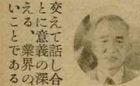 変えて話し合
とに意義の深
える、業界の
いことである